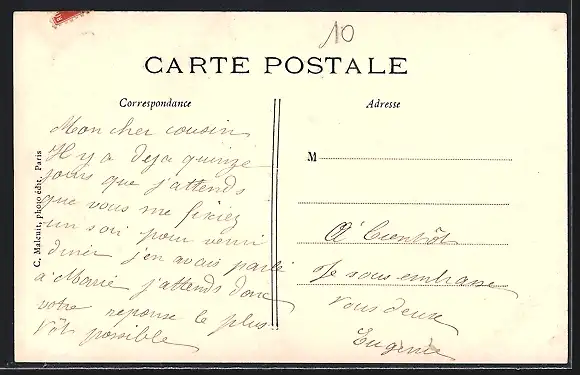 10
CARTE POSTALE
Correspondance
Adresse
Mon cher cousin
Il y a deja quinze
jours que j'attends
que vous me fixiez
un soir pour venir
diner j'en avais parlé
à Marie j'attends donc
votre reponse le plus
tôt possible
M
A Bientôt
Je vous embrasse
vous deux
Eugenie
C. Malcuit, photo édit. Paris